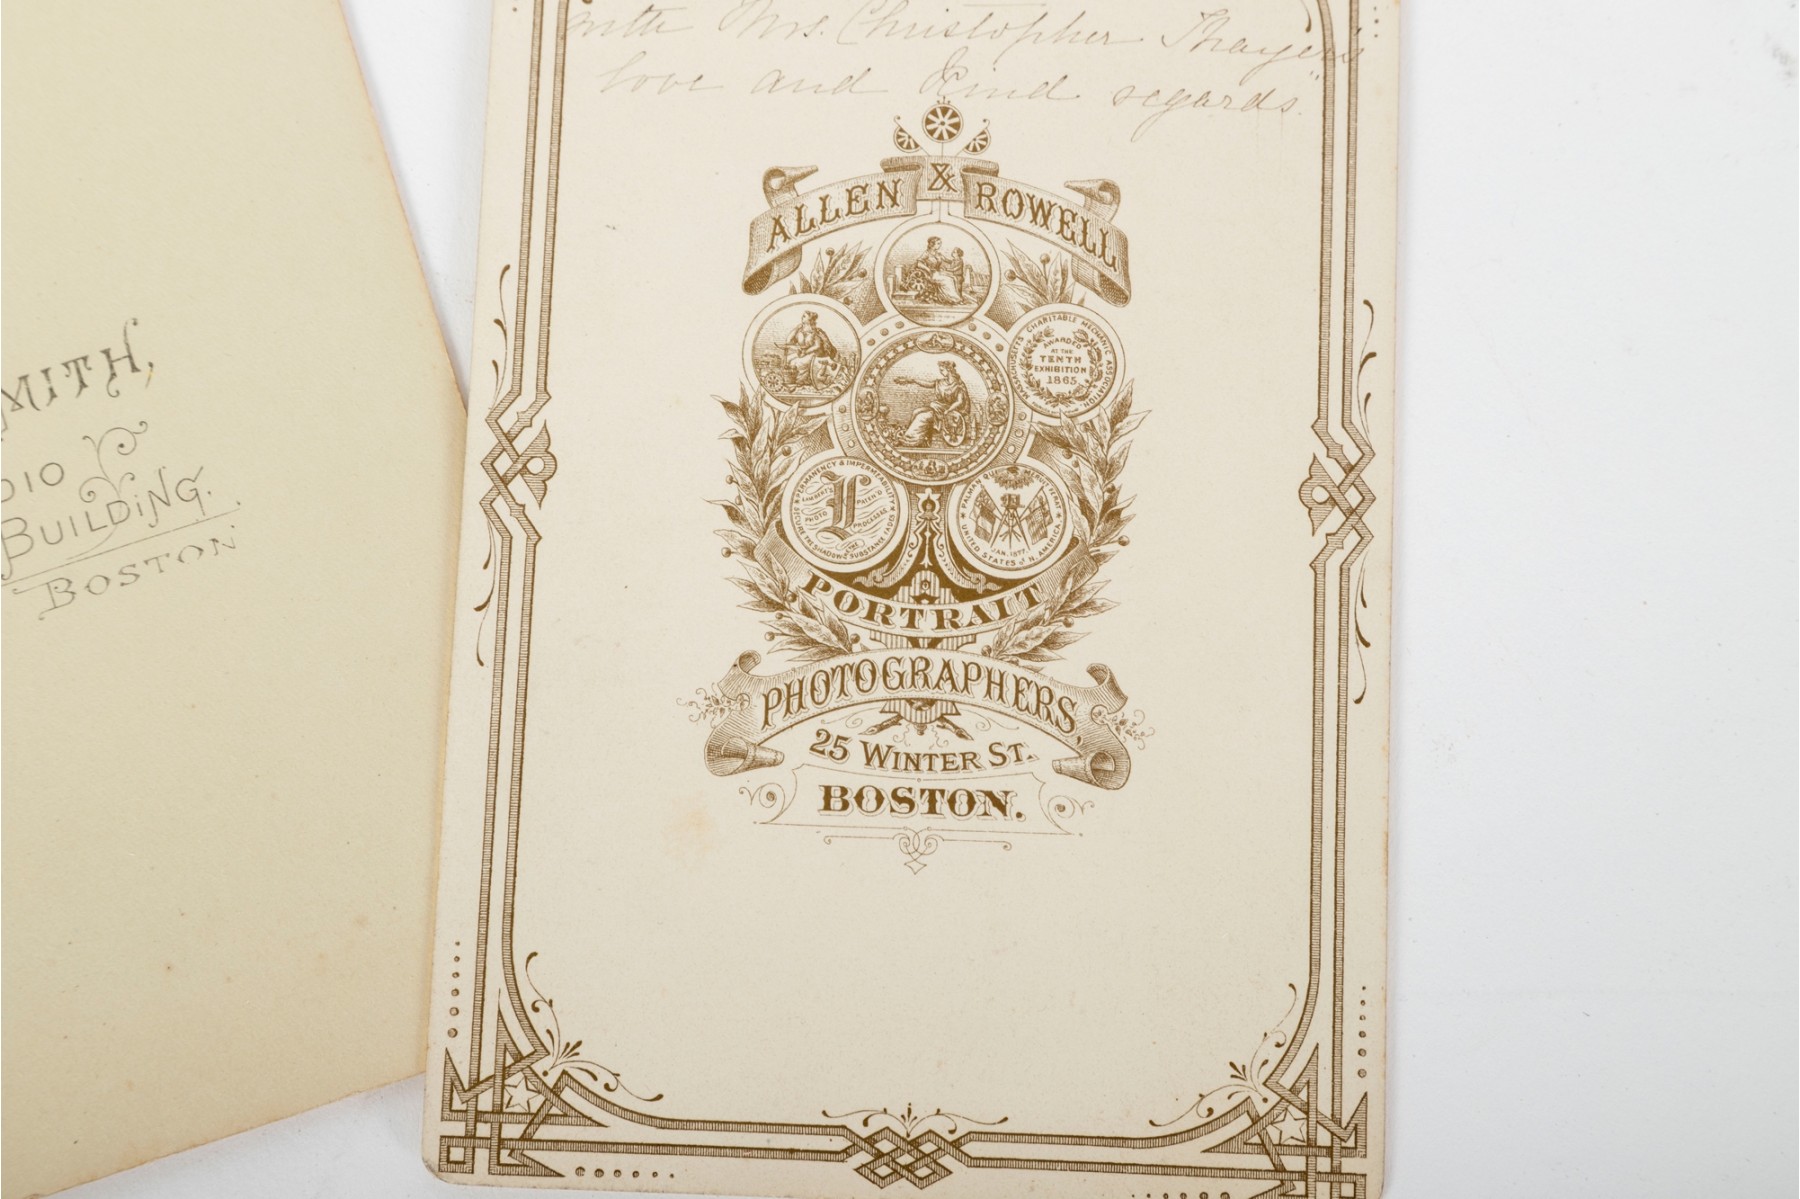 MITH,
DIO
BUILDING.
BOSTON
with Mrs. Christopher Thayer's
love and kind regards"
ALLEN & ROWELL
MASSACHUSETTS CHARITABLE MECHANIC ASSOCIATION.
AWARDED
AT THE
TENTH
EXHIBITION
1865
PERMANENCY & IMPERMEABILITY
SECURE THE SHADOW & THE SUBSTANCE FADES
LAMBERT'S PATEN'D
L
PHOTO PROCESSES
PALMAM QUI MERUIT FERAT
JAN. 1877.
UNITED STATES of N. AMERICA
PORTRAIT
PHOTOGRAPHERS,
25 WINTER ST.
BOSTON.